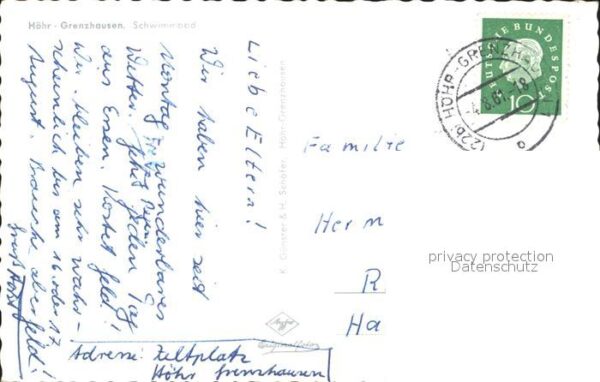 Höhr - Grenzhausen, Schwimmbad
Liebe Eltern!
Wir haben hier seit
Montag wunderbares
Wetter. Jeden Tag
aus Essen. Kostet Geld!
Wir bleiben sehr wahr-
scheinlich bis am 16. oder 17.
August. Brauche aber Geld!
Adresse: Zeltplatz
Höhr Grenzhausen
K. Günster & H. Schäfer, Höhr-Grenzhausen
Agfa
Originalfoto
DEUTSCHE BUNDESPOST
10
(22b) HÖHR-GRENZHAUSEN
-4.8.61-18
Familie
Herm
R
Ha
privacy protection
Datenschutz